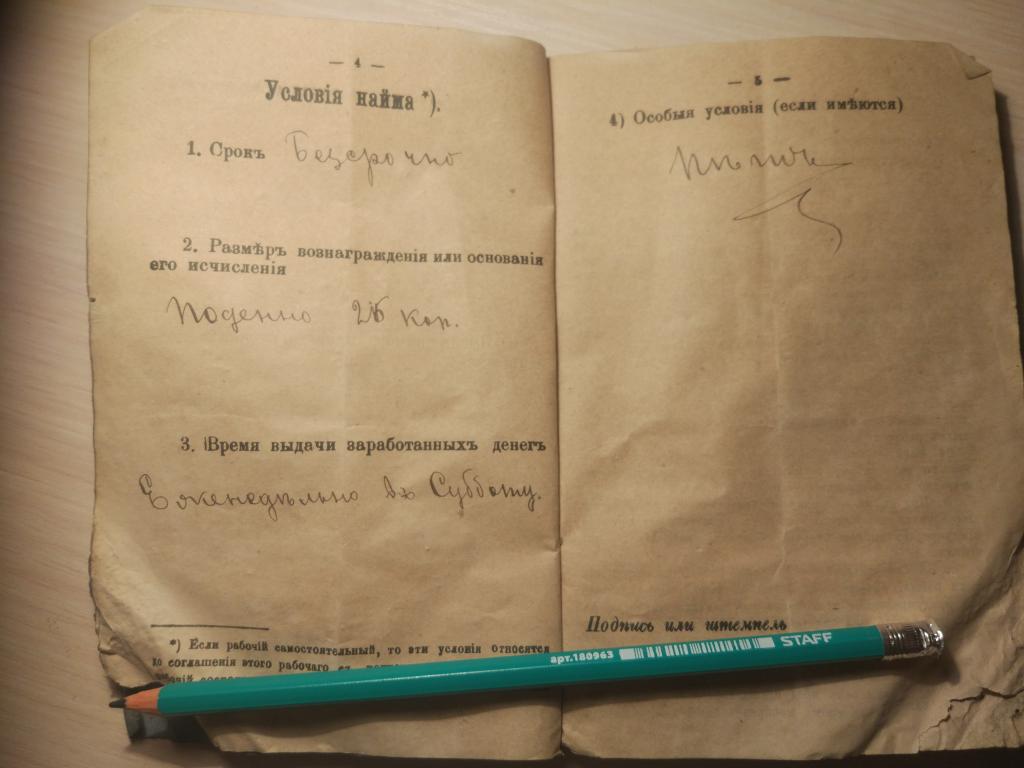 — 4 —
Условія найма *).
1. Срокъ Безсрочно
2. Размѣръ вознагражденія или основанія
его исчисленія
Поденно 25 коп.
3. Время выдачи заработанныхъ денегъ
Еженедѣльно въ Субботу.
*) Если рабочій самостоятельный, то эти условія относятся
ко соглашенія этого рабочаго съ
— 5 —
4) Особыя условія (если имѣются)
Подпись или штемпель
арт.180963 STAFF